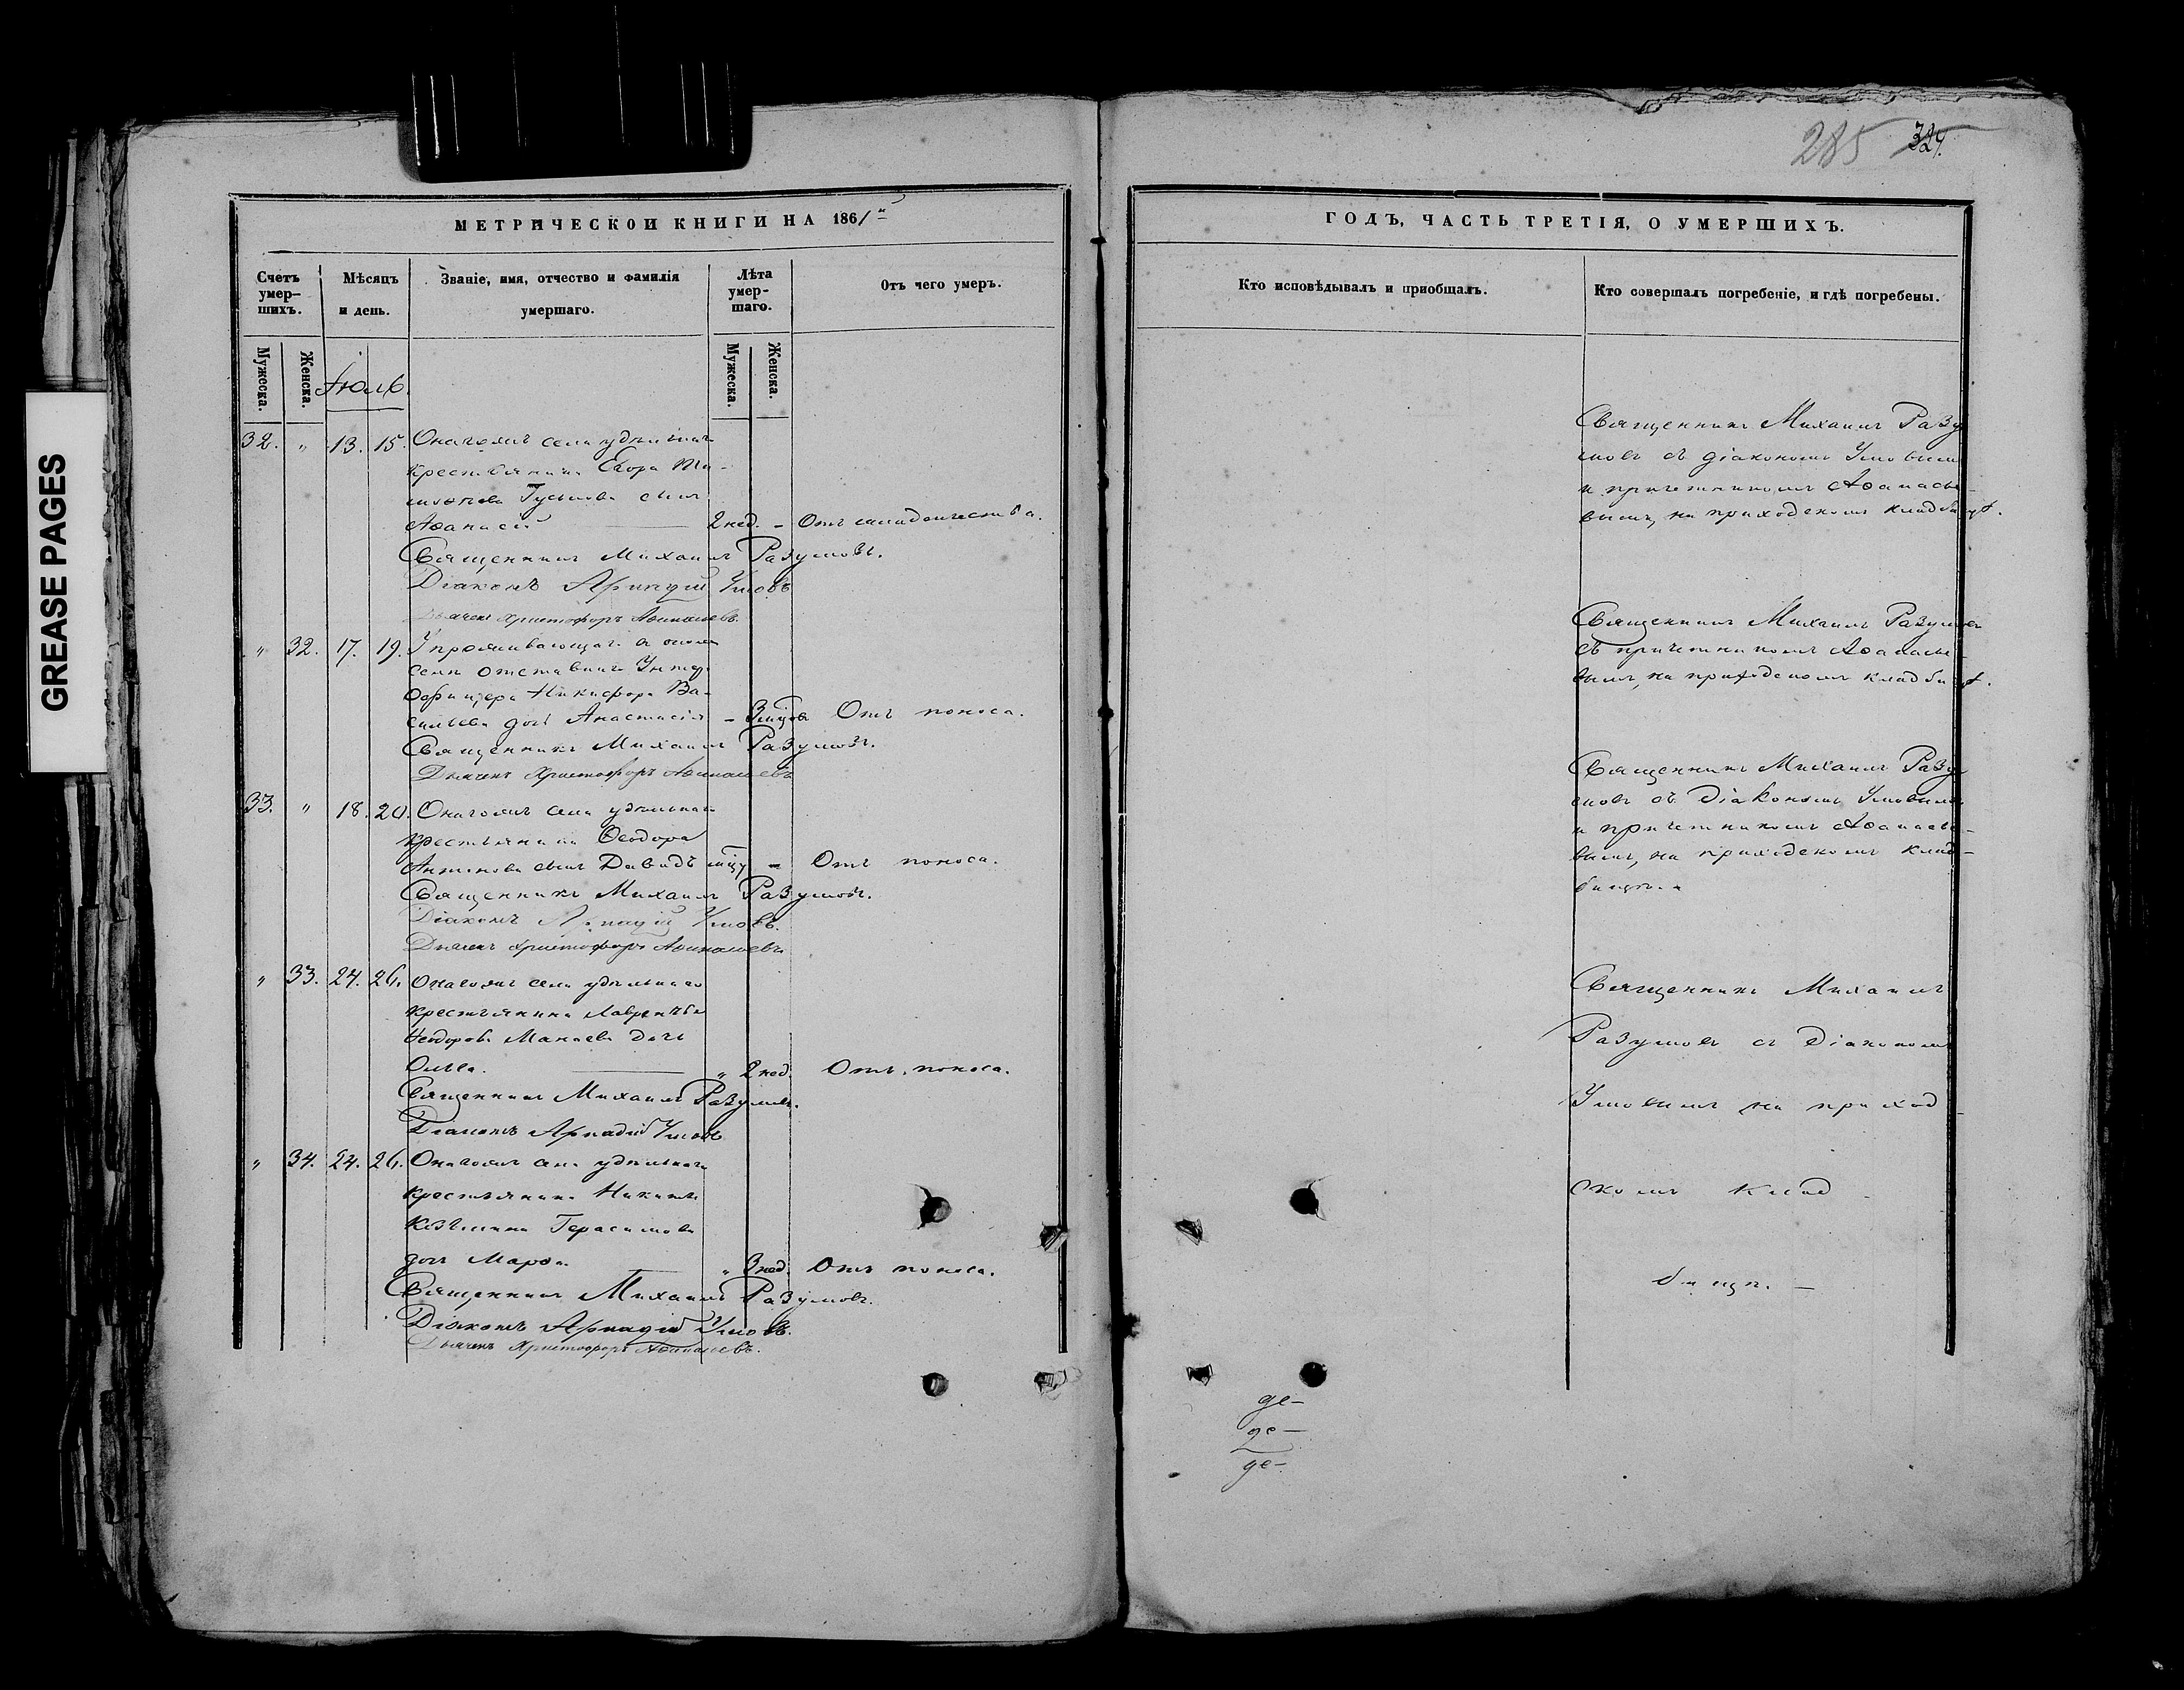 285 324.
GREASE PAGES
МЕТРИЧЕСКОЙ КНИГИ НА 1861й
Счетъ умер-шихъ.
Мѣсяцъ и день.
Званіе, имя, отчество и фамилія умершаго.
Лѣта умер-шаго.
Отъ чего умеръ.
Мужеска.
Женска.
Іюль.
Мужеска.
Женска.
32. " 13. 15. Онагожъ села удѣльнаго
крестьянина Егора Ти-
мофеева Гуськова сынъ
Аѳанасій 2 нед. - Отъ младенчества.
Священникъ Михаилъ Разумовъ.
Діаконъ Аркадій Умовъ
Дьячекъ Христофоръ Аѳанасьевъ
" 32. 17. 19. У проживающаго въ ономъ
селѣ отставнаго Унтеръ
Офицера Никифора Ва-
сильева дочь Анастасія - 3 мцов Отъ поноса.
Священникъ Михаилъ Разумовъ.
Дьячекъ Христофоръ Аѳанасьевъ
33. " 18. 20. Онагожъ села удѣльнаго
крестьянина Ѳеодора
Антонова сынъ Давидъ мцу - Отъ поноса.
Священникъ Михаилъ Разумовъ.
Діаконъ Аркадій Умовъ.
Дьячекъ Христофоръ Аѳанасьевъ
" 33. 24. 26. Онагожъ села удѣльнаго
крестьянина Лаврентья
Ѳеодорова дочь
Ольга. " 2 нед. Отъ поноса.
Священникъ Михаилъ Разумовъ.
Діаконъ Аркадій Умовъ
" 34. 24. 26. Онагожъ села удѣльнаго
крестьянина Никиты
Козьмина Герасимова
дочь Марѳа " 3 нед. Отъ поноса.
Священникъ Михаилъ Разумовъ.
Діаконъ Аркадій Умовъ.
Дьячекъ Христофоръ Аѳанасьевъ.
ГОДЪ, ЧАСТЬ ТРЕТІЯ, О УМЕРШИХЪ.
Кто исповѣдывалъ и пріобщалъ.
Кто совершалъ погребеніе, и гдѣ погребены.
Священникъ Михаилъ Разу
мовъ съ діакономъ Умовымъ
и причетникомъ Аѳанасье-
вымъ, на приходскомъ кладбищѣ.
Священникъ Михаилъ Разумовъ
съ причетникомъ Аѳанасье-
вымъ, на приходскомъ кладбищѣ.
Священникъ Михаилъ Разу
мовъ съ Діакономъ Умовымъ
и причетникомъ Аѳанасье-
вымъ, на приходскомъ клад-
бищѣ.
Священникъ Михаилъ
Разумовъ съ Діакономъ
Умовымъ на приход-
скомъ клад-
бищѣ. —
де-
де-
де-